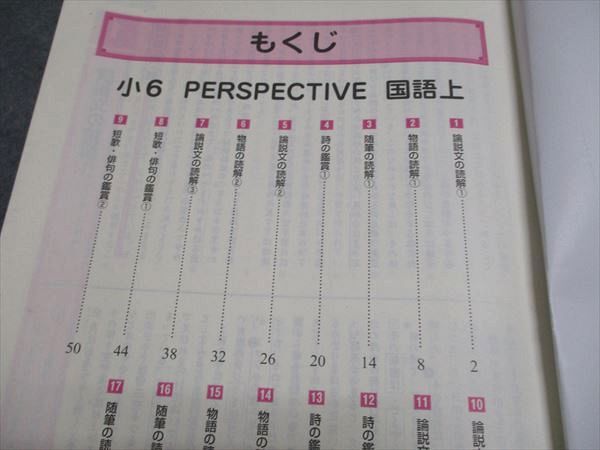 もくじ
小6 PERSPECTIVE 国語上
1 論説文の読解① 2
2 物語の読解① 8
3 随筆の読解① 14
4 詩の鑑賞① 20
5 論説文の読解② 26
6 物語の読解② 32
7 論説文の読解③ 38
8 短歌・俳句の鑑賞① 44
9 短歌・俳句の鑑賞② 50
10 論説文
11 論説文
12 詩の鑑
13 詩の鑑
14 物語の
15 物語の読
16 随筆の読
17 随筆の読